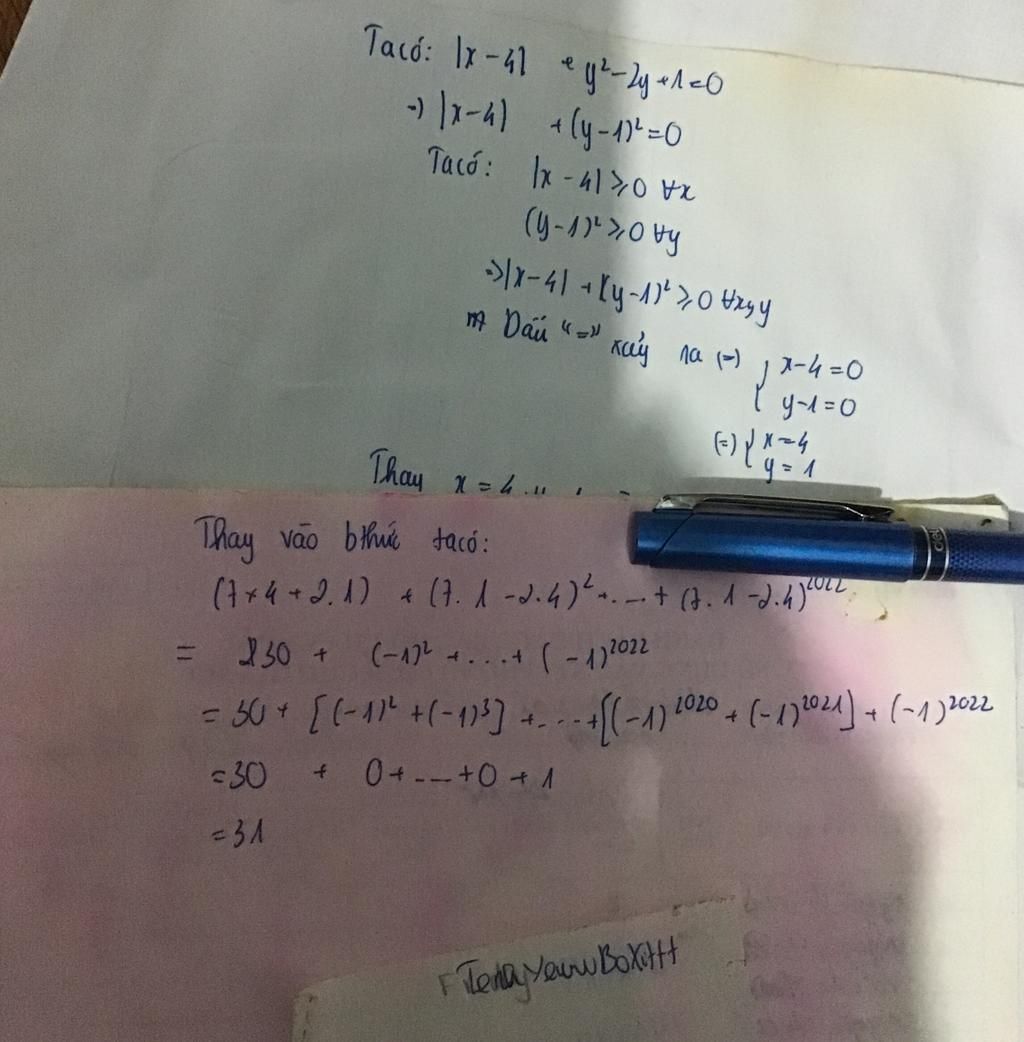 Ta có: |x-4| + y²-2y+1=0
=) |x-4| + (y-1)²=0
Ta có: |x-4| ≥ 0 ∀x
(y-1)² ≥ 0 ∀y
=> |x-4| + (y-1)² ≥ 0 ∀x,y
Dấu "=" xảy ra (=) { x-4=0
y-1=0
(=) { x=4
y=1
Thay x=4
Thay vào bthức ta có:
(7×4+2.1) + (7.1-2.4)²+...+ (7.1-2.4)²⁰²²
= 30 + (-1)² +...+ (-1)²⁰²²
=30+ [(-1)² +(-1)³] +...+[(-1)²⁰²⁰ + (-1)²⁰²¹] + (-1)²⁰²²
=30 + 0+---+0+1
=31